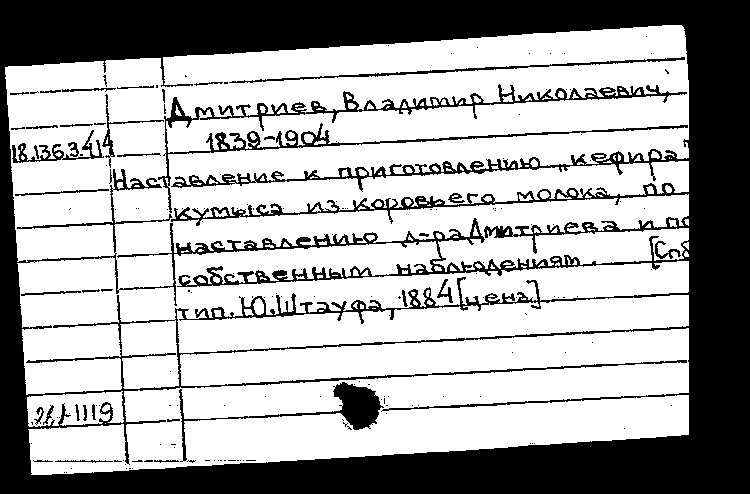 Дмитриев, Владимир Николаевич,
1839-1904
18.136.3.414
Наставление к приготовлению „кефира"
кумыса из коровьего молока, по
наставлению д-ра Дмитриева и по
собственным наблюдениям. [Спб
тип. Ю. Штауфа, 1884 [цена]
1119